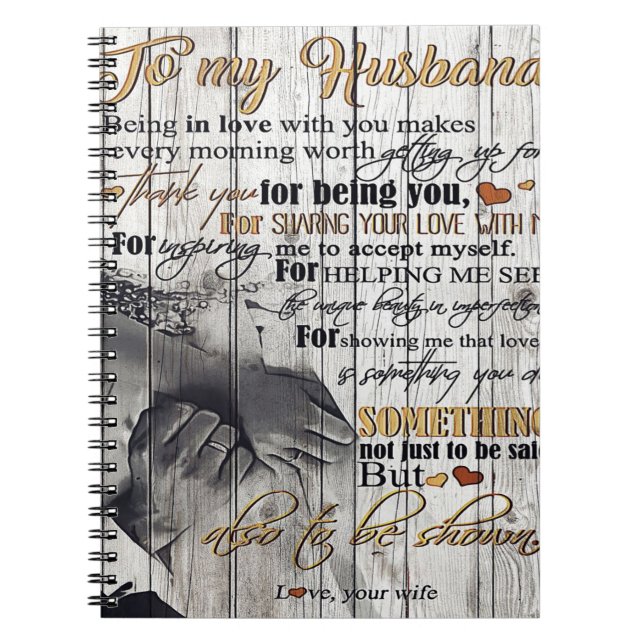 To my Husband
Being in love with you makes
every morning worth getting up for
Thank you for being you,
For SHARNG YOUR LOVE WITH M
For inspiring me to accept myself.
For HELPING ME SEE
the unique beauty in imperfection
For showing me that love
is something you do
SOMETHING
not just to be said
But
also to be shown.
Love, your wife